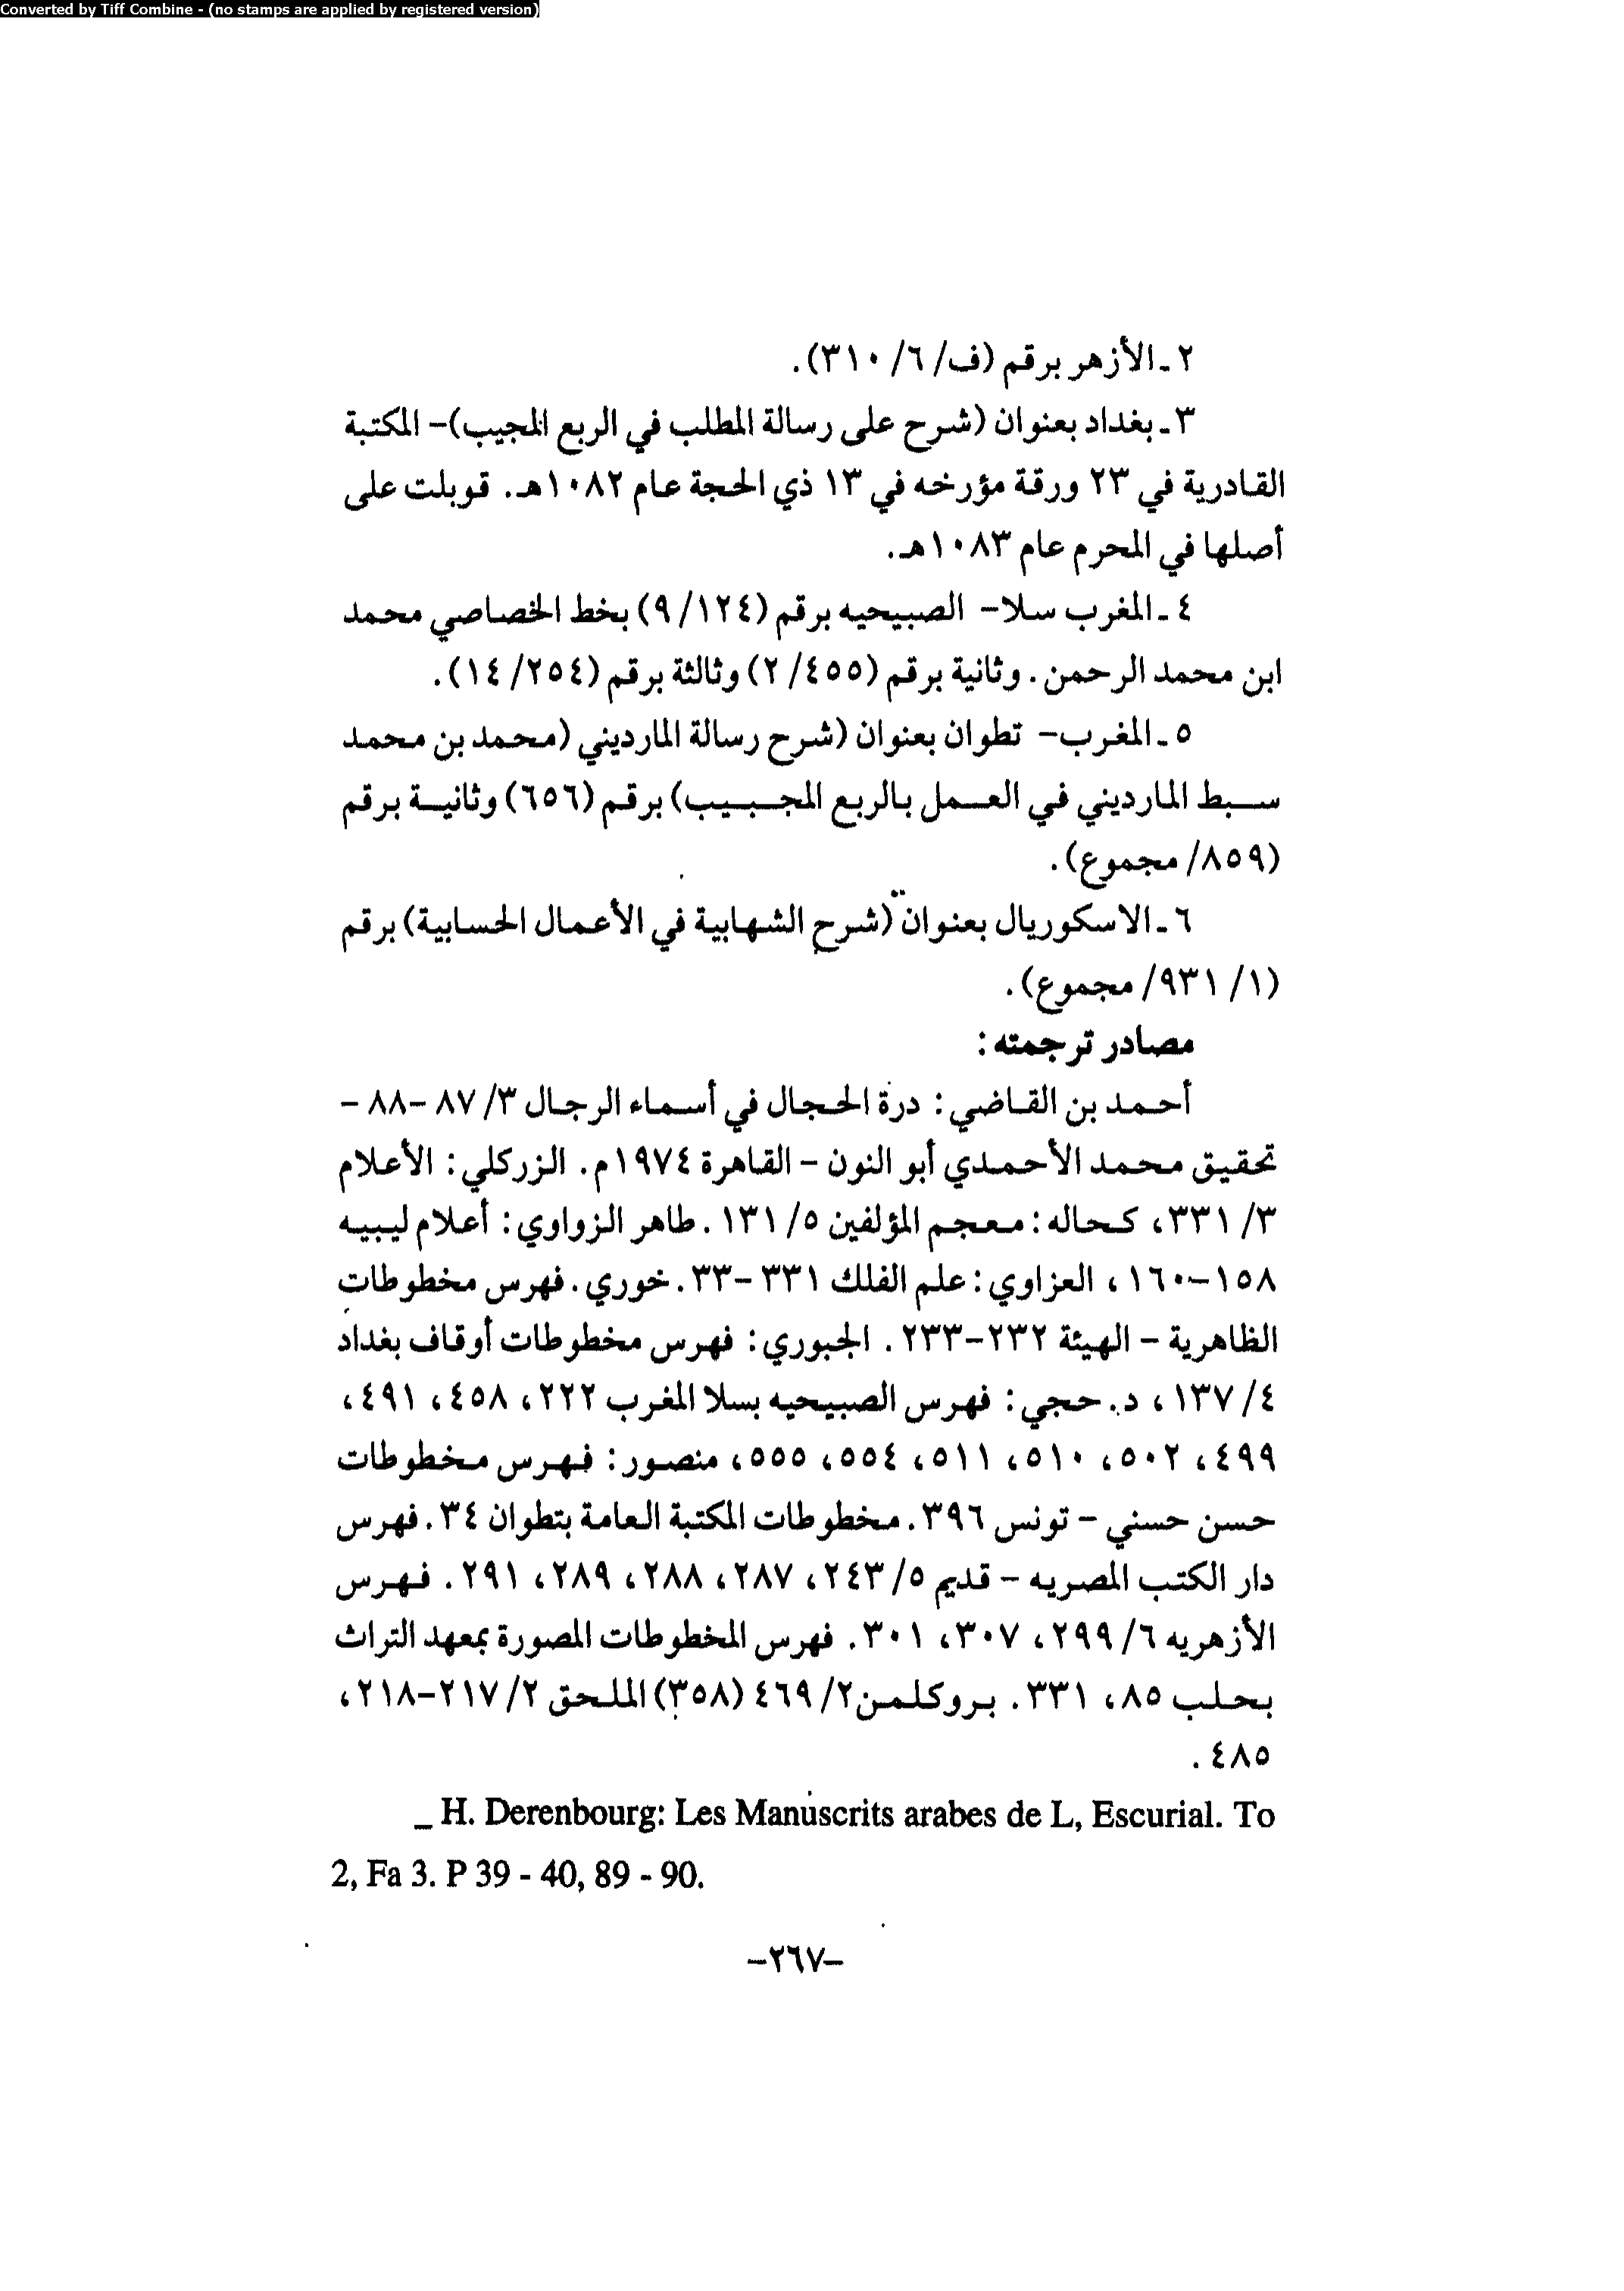 Converted by Tiff Combine - (no stamps are applied by registered version)
٢ـ الأزهر برقم (ف/ ٦/ ٣١٠).
٣ـ بغداد بعنوان (شرح على رسالة المطلب في الربع المجيب)- المكتبة
القادرية في ٢٣ ورقة مؤرخه في ١٣ ذي الحجة عام ١٠٨٢هـ. قوبلت على
أصلها في المحرم عام ١٠٨٣هـ.
٤ـ المغرب سلا- الصبيحيه برقم (٩/١٢٤) بخط الخصاصي محمد
ابن محمد الرحمن. وثانية برقم (٢/٤٥٥) وثالثة برقم (١٤/٢٥٤).
٥ـ المغرب- تطوان بعنوان (شرح رسالة المارديني (محمد بن محمد
سبط المارديني في العمل بالربع المجبيب) برقم (٦٥٦) وثانية برقم
(٨٥٩/ مجموع).
٦ـ الاسكوريال بعنوان (شرح الشهابية في الأعمال الحسابية) برقم
(١/ ٩٣١/ مجموع).
مصادر ترجمته:
أحمد بن القاضي: درة الحجال في أسماء الرجال ٣/ ٨٧-٨٨-
تحقيق محمد الأحمدي أبو النون - القاهرة ١٩٧٤م. الزركلي: الأعلام
٣/ ٣٣١، كحاله: معجم المؤلفين ٥/ ١٣١. طاهر الزواوي: أعلام ليبيه
١٥٨-١٦٠، العزاوي: علم الفلك ٣٣١-٣٣. خوري. فهرس مخطوطات
الظاهرية - الهيئة ٢٣٢-٢٣٣. الجبوري: فهرس مخطوطات أوقاف بغداد
٤/ ١٣٧، د. حجي: فهرس الصبيحيه بسلا المغرب ٢٢٢، ٤٥٨، ٤٩١،
٤٩٩، ٥٠٢، ٥١٠، ٥١١، ٥٥٤، ٥٥٥، منصور: فهرس مخطوطات
حسن حسني - تونس ٣٩٦. مخطوطات المكتبة العامة بتطوان ٣٤. فهرس
دار الكتب المصريه - قديم ٥/ ٢٤٣، ٢٨٧، ٢٨٨، ٢٨٩، ٢٩١. فهرس
الأزهريه ٦/ ٢٩٩، ٣٠٧، ٣٠١. فهرس المخطوطات المصورة بمعهد التراث
بحلب ٨٥، ٣٣١. بروكلمن٢/ ٤٦٩ (٣٥٨) الملحق ٢/ ٢١٧-٢١٨،
٤٨٥.
_ H. Derenbourg: Les Manuscrits arabes de L, Escurial. To
2, Fa 3. P 39 - 40, 89 - 90.
-٢٦٧-